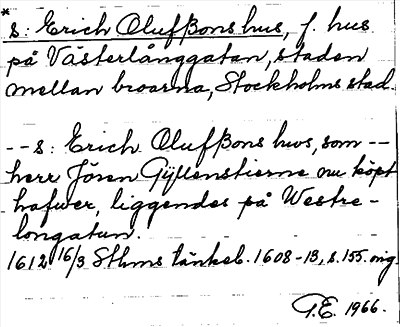 * s: Erich Olufßons hus, f. hus
på Västerlånggatan, staden
mellan broarna, Stockholms stad.
-- s: Erich Olufßons hws, som --
herr Jören Gÿllenstierne nu köpt
hafwer, liggendes på Westre-
longatun.
1612 16/3 Sthms tänkeb. 1608-13, s. 155. orig.
T.E. 1966.